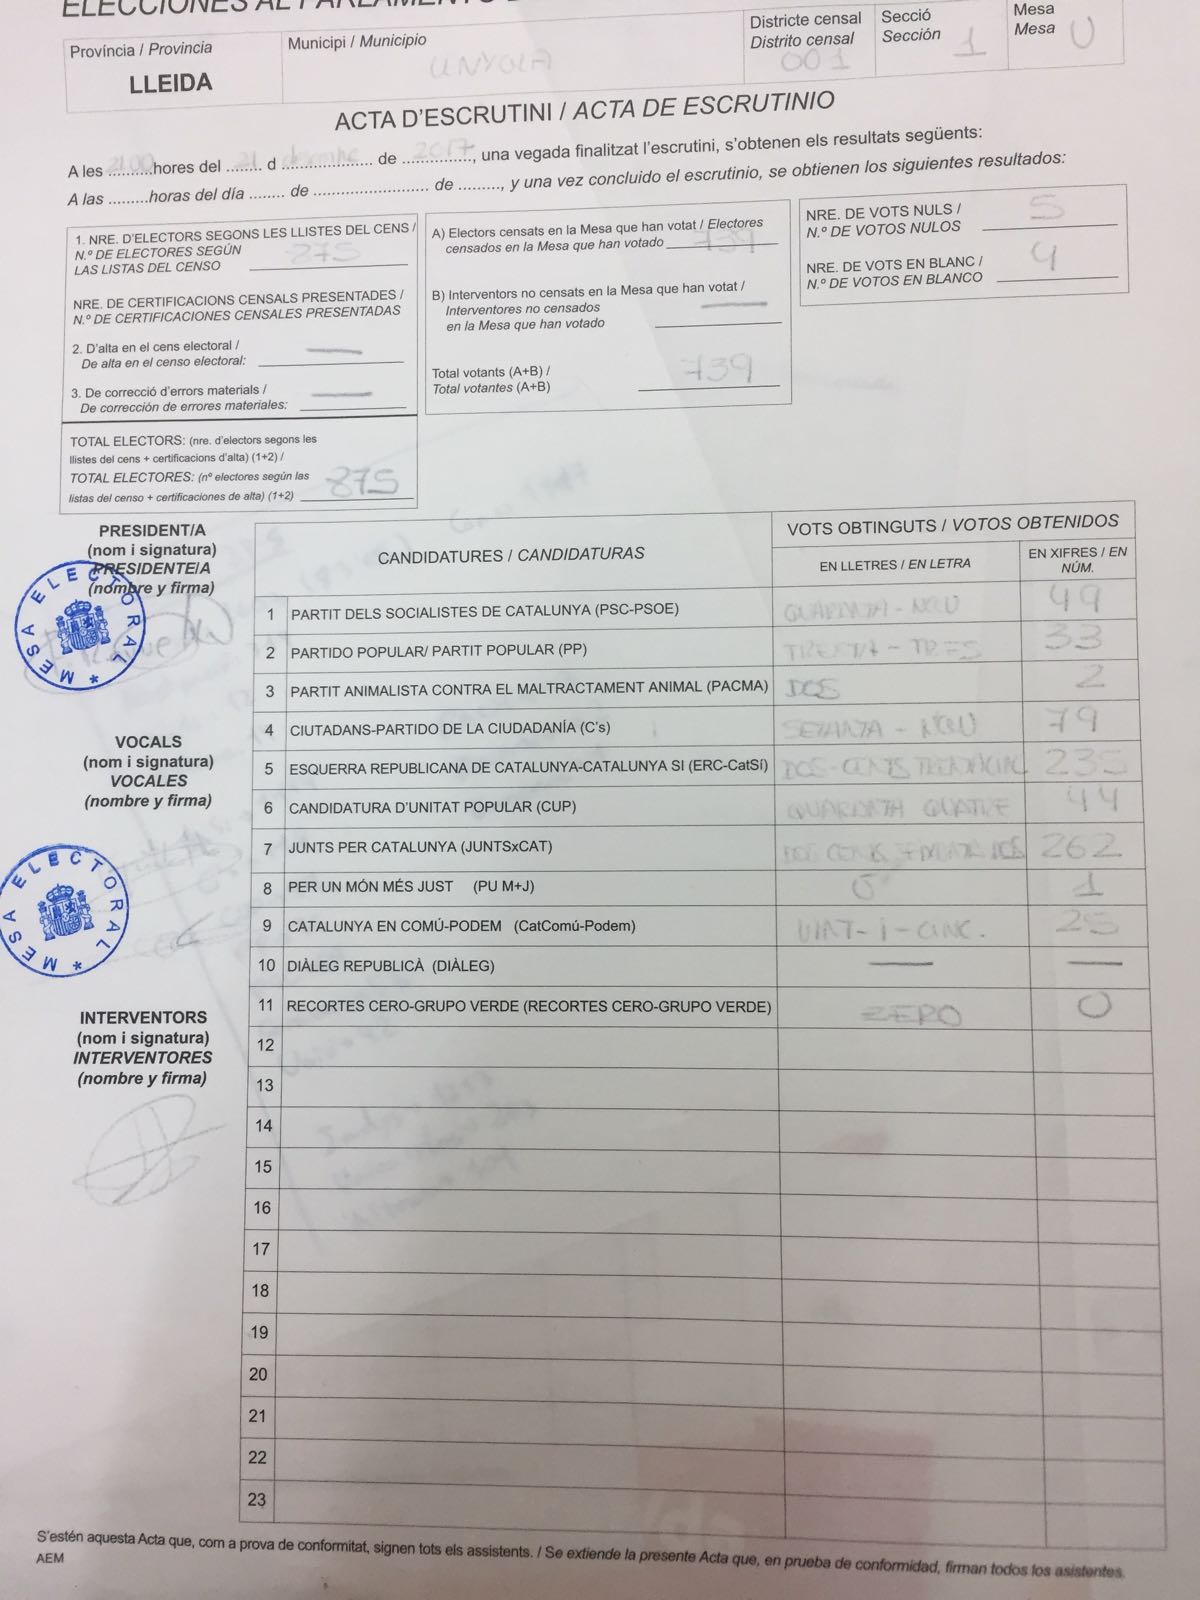 ELECCIONES AL PARLAMENTO
Província / Provincia
LLEIDA
Municipi / Municipio
LINYOLA
Districte censal
Distrito censal
001
Secció
Sección
1
Mesa
Mesa
U
ACTA D'ESCRUTINI / ACTA DE ESCRUTINIO
A les 21:00 hores del 21 d desembre de 2017, una vegada finalitzat l'escrutini, s'obtenen els resultats següents:
A las .........horas del día ........ de .......................... de ........., y una vez concluido el escrutinio, se obtienen los siguientes resultados:
1. NRE. D'ELECTORS SEGONS LES LLISTES DEL CENS /
N.º DE ELECTORES SEGÚN
LAS LISTAS DEL CENSO 875
NRE. DE CERTIFICACIONS CENSALS PRESENTADES /
N.º DE CERTIFICACIONES CENSALES PRESENTADAS
2. D'alta en el cens electoral / —
De alta en el censo electoral:
3. De correcció d'errors materials / —
De corrección de errores materiales:
TOTAL ELECTORS: (nre. d'electors segons les
llistes del cens + certificacions d'alta) (1+2) /
TOTAL ELECTORES: (nº electores según las
listas del censo + certificaciones de alta) (1+2) 875
A) Electors censats en la Mesa que han votat / Electores
censados en la Mesa que han votado 739
B) Interventors no censats en la Mesa que han votat /
Interventores no censados —
en la Mesa que han votado
Total votants (A+B) / 739
Total votantes (A+B)
NRE. DE VOTS NULS / 5
N.º DE VOTOS NULOS
NRE. DE VOTS EN BLANC / 4
N.º DE VOTOS EN BLANCO
PRESIDENT/A
(nom i signatura)
PRESIDENTE/A
(nombre y firma)
MESA ELECTORAL *
VOCALS
(nom i signatura)
VOCALES
(nombre y firma)
MESA ELECTORAL *
INTERVENTORS
(nom i signatura)
INTERVENTORES
(nombre y firma)
CANDIDATURES / CANDIDATURAS
VOTS OBTINGUTS / VOTOS OBTENIDOS
EN LLETRES / EN LETRA
EN XIFRES / EN
NÚM.
1 PARTIT DELS SOCIALISTES DE CATALUNYA (PSC-PSOE) QUARANTA-NOU 49
2 PARTIDO POPULAR/ PARTIT POPULAR (PP) TRENTA-TRES 33
3 PARTIT ANIMALISTA CONTRA EL MALTRACTAMENT ANIMAL (PACMA) DOS 2
4 CIUTADANS-PARTIDO DE LA CIUDADANÍA (C's) SETANTA-NOU 79
5 ESQUERRA REPUBLICANA DE CATALUNYA-CATALUNYA SI (ERC-CatSí) DOS-CENTS 235
6 CANDIDATURA D'UNITAT POPULAR (CUP) QUARANTA QUATRE 44
7 JUNTS PER CATALUNYA (JUNTSxCAT) DOS CENTS DOS 262
8 PER UN MÓN MÉS JUST (PU M+J) 1
9 CATALUNYA EN COMÚ-PODEM (CatComú-Podem) VINT-I-CINC. 25
10 DIÀLEG REPUBLICÀ (DIÀLEG) — —
11 RECORTES CERO-GRUPO VERDE (RECORTES CERO-GRUPO VERDE) ZERO 0
12
13
14
15
16
17
18
19
20
21
22
23
S'estén aquesta Acta que, com a prova de conformitat, signen tots els assistents. / Se extiende la presente Acta que, en prueba de conformidad, firman todos los asistentes.
AEM